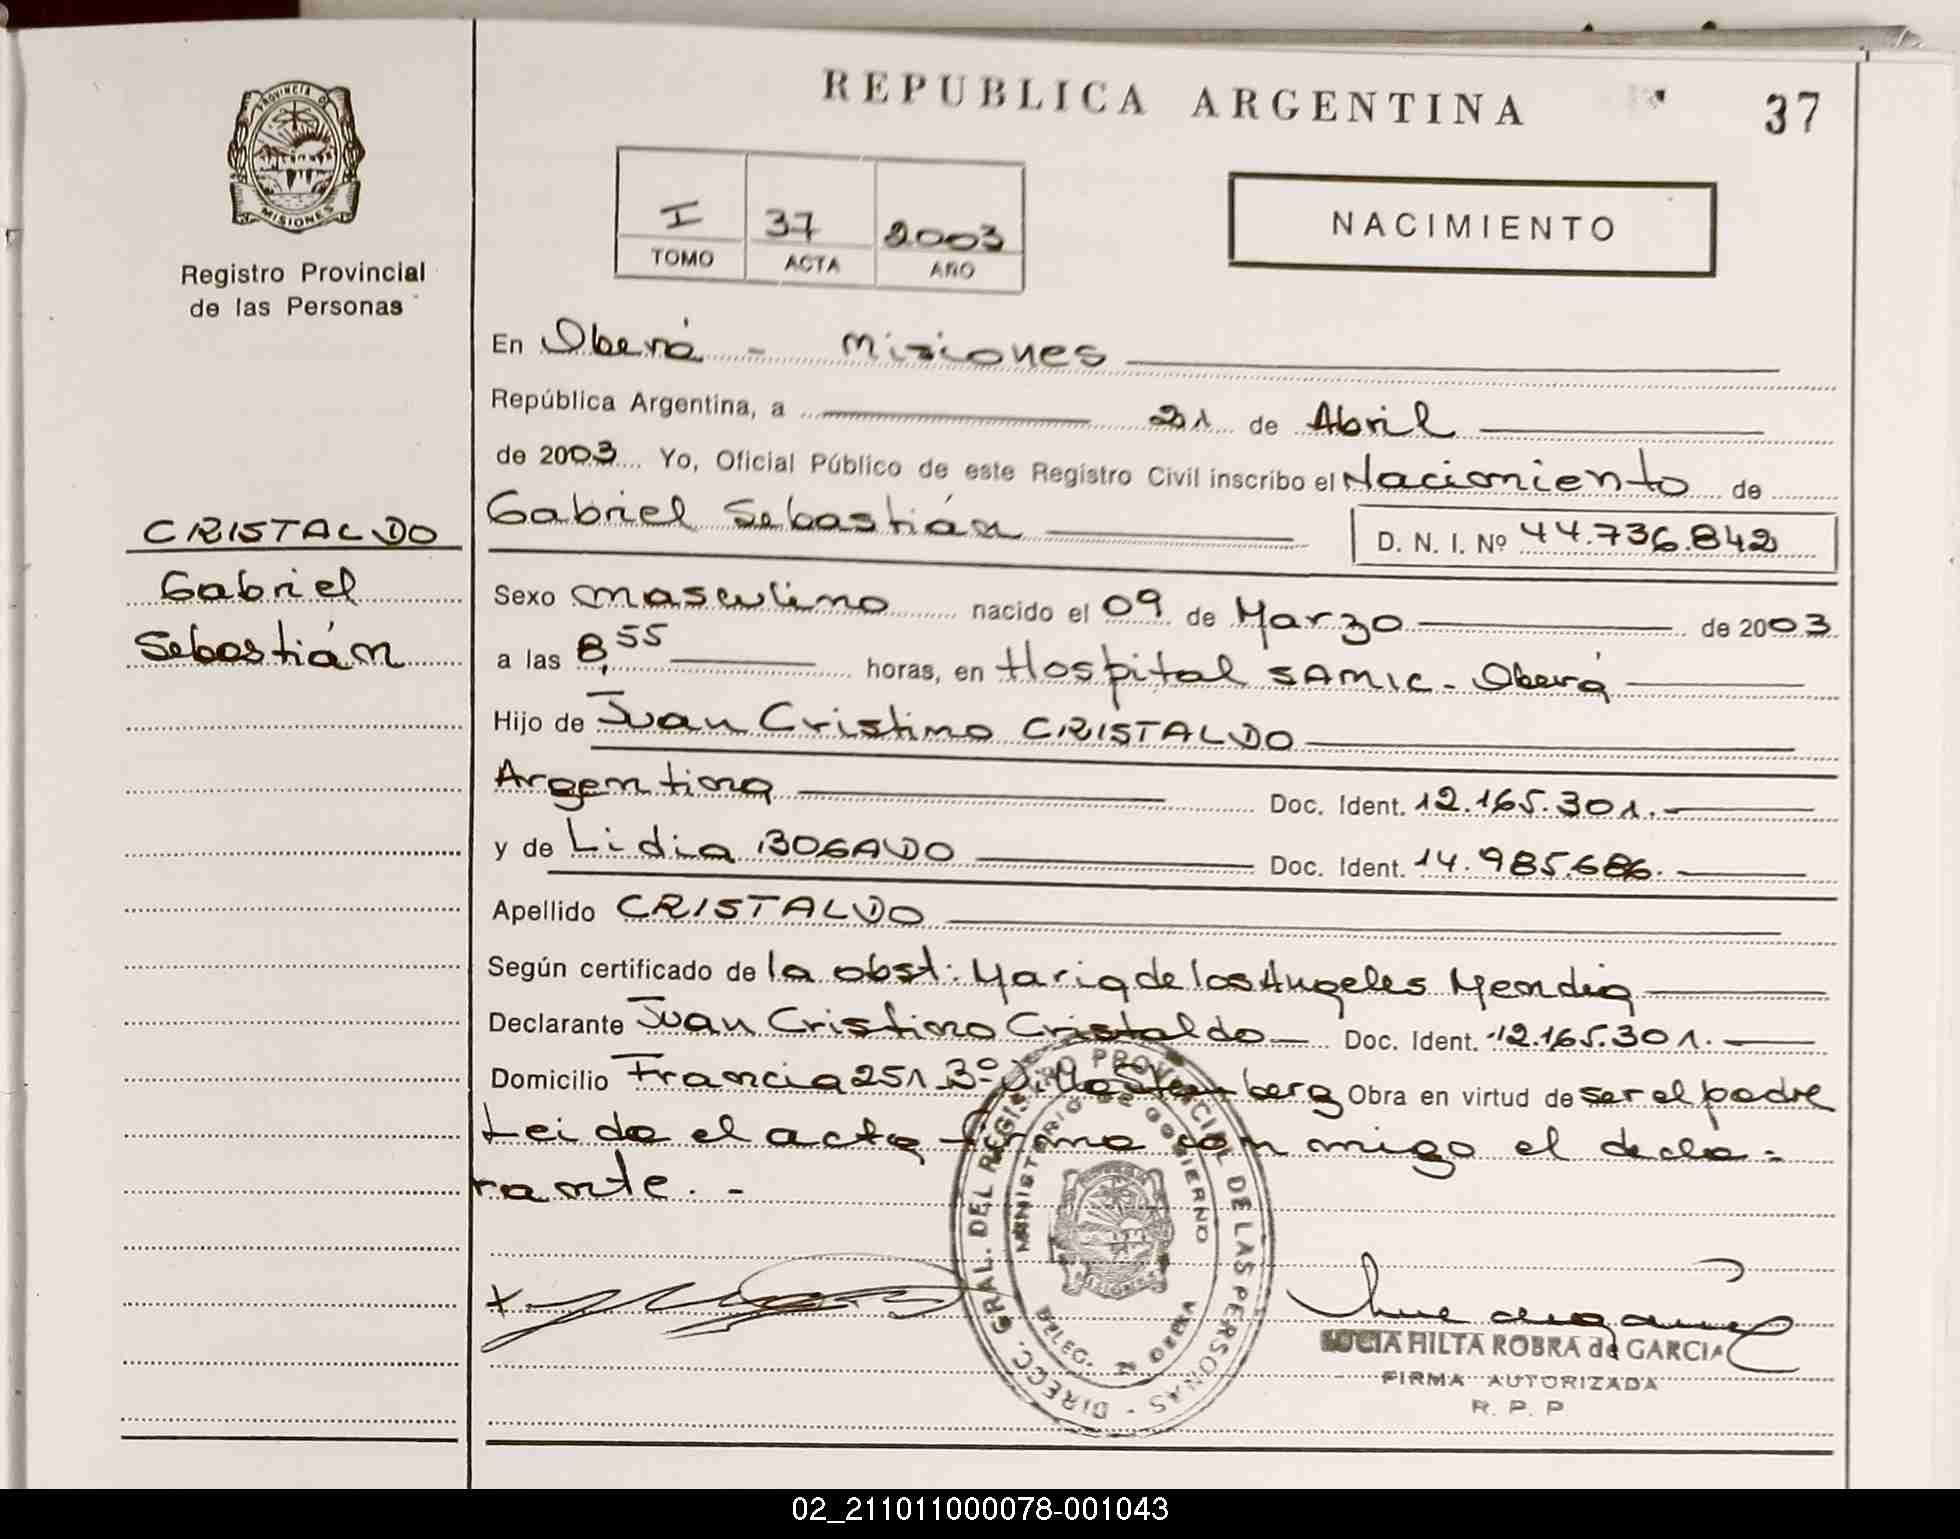 REPUBLICA ARGENTINA
37
PROVINCIA DE
MISIONES
Registro Provincial
de las Personas
I 37 2003
TOMO ACTA AÑO
NACIMIENTO
En Oberá - Misiones
República Argentina, a 21 de Abril
de 2003 Yo, Oficial Público de este Registro Civil inscribo el Nacimiento de
Gabriel Sebastián D. N. I. Nº 44.736.842
CRISTALDO
Gabriel
Sebastián
Sexo masculino nacido el 09 de Marzo de 2003
a las 8,55 horas, en Hospital SAMIC - Oberá
Hijo de Juan Cristino CRISTALDO
Argentina Doc. Ident. 12.165.301.
y de Lidia BOGADO Doc. Ident. 14.985.686.
Apellido CRISTALDO
Según certificado de la obst: Maria de los Angeles Mendia
Declarante Juan Cristino Cristaldo Doc. Ident. 12.165.301.
Domicilio Francia 251 Bº Villa Obra en virtud de ser el padre
Leido el acta firma con migo el decla-
rante. -
DIRECC. GRAL. DEL REGISTRO PROVINCIAL DE LAS PERSONAS -
MINISTERIO DE GOBIERNO
DELEG. OBERA
MISIONES
LUCIA HILTA ROBRA de GARCIA
FIRMA AUTORIZADA
R. P. P
02_211011000078-001043